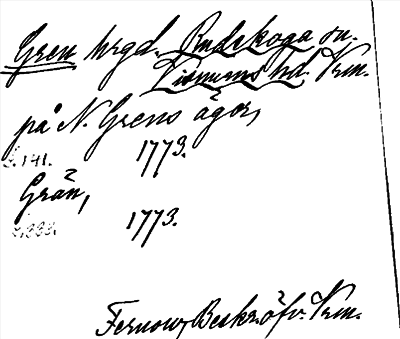 Gren hrgd. Rudskoga sn.
Visnums hd. Vrm.
på N. Grens ägor,
s. 141. 1773.
Grän,
s. 333. 1773.
Fernow, Beskr. öfv. Vrm.